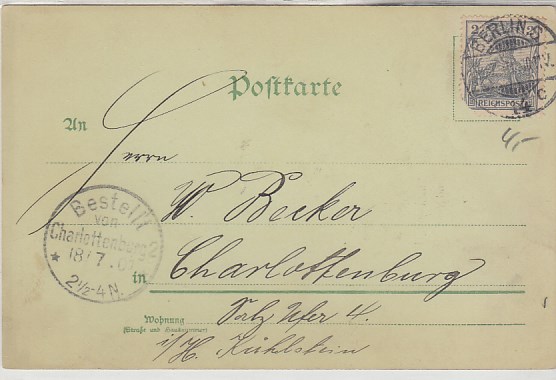 2 2
BERLIN.S.
REICHSPOST
Postkarte
4,-
An
Herrn
W. Becker
Bestellt
von
Charlottenburg 2
18/7.0
2½-4 N.
in
Charlottenburg
Wohnung
(Straße und Hausnummer)
Salz Ufer 4.
i/H. Kühlstein